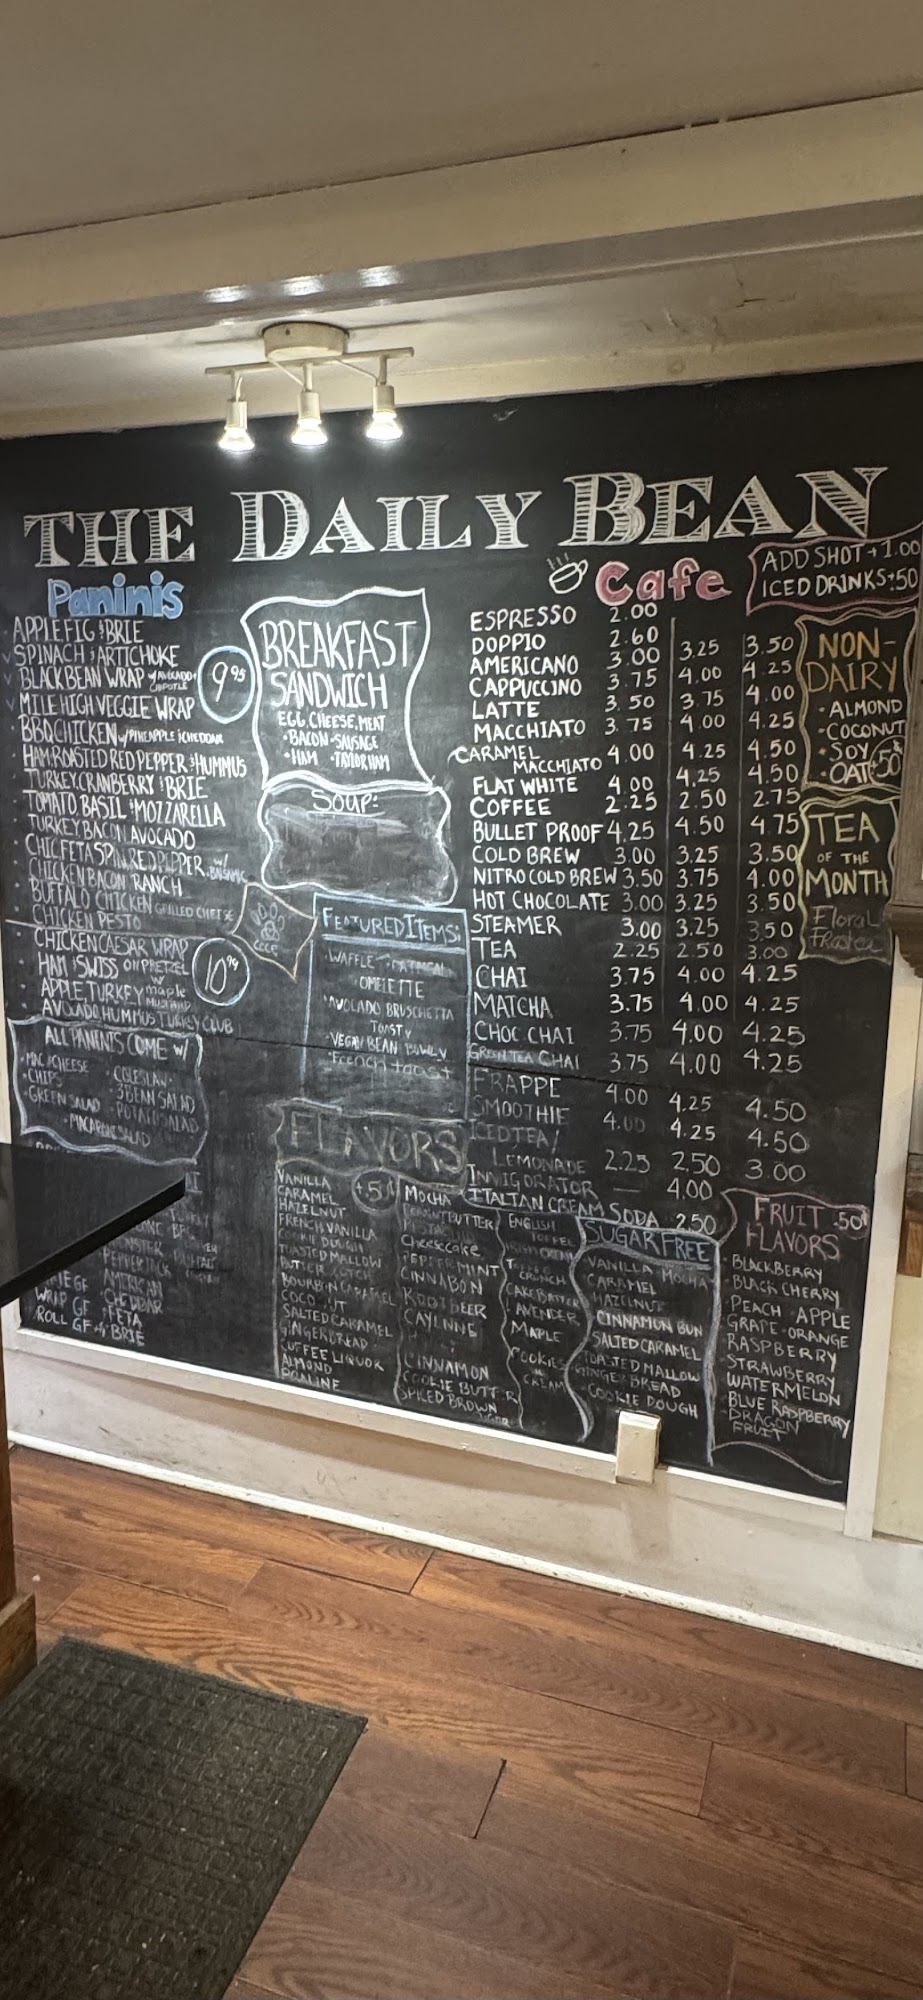 THE DAILY BEAN
Paninis
APPLE FIG & BRIE
SPINACH & ARTICHOKE
BLACK BEAN WRAP W/ AVOCADO + CHIPOTLE
MILE HIGH VEGGIE WRAP
BBQ CHICKEN W/ PINEAPPLE & CHEDDAR
HAM ROASTED RED PEPPER & HUMMUS
TURKEY, CRANBERRY & BRIE
TOMATO, BASIL & MOZZARELLA
TURKEY BACON AVOCADO
CHIC FETA SPIN RED PEPPER W/ BALSAMIC
CHICKEN BACON RANCH
BUFFALO CHICKEN GRILLED CHEESE
CHICKEN PESTO
9.95
CHICKEN CAESAR WRAP
HAM & SWISS ON PRETZEL
APPLE, TURKEY W/ maple MUSTARD
AVOCADO HUMMUS TURKEY CLUB
ALL PANINIS COME W/
MAC & CHEESE
CHIPS
GREEN SALAD
COLESLAW
3 BEAN SALAD
POTATO SALAD
MACARONI SALAD
PEPPERJACK
AMERICAN
CHEDDAR
WRAP GF
FETA
ROLL GF
BRIE
BREAKFAST
SANDWICH
EGG, CHEESE, MEAT
BACON SAUSAGE
HAM TAYLOR HAM
SOUP:
FEATURED ITEMS:
WAFFLE OATMEAL
OMELETTE
AVOCADO BRUSCHETTA
TOAST
VEGAN BEAN BOWL
French toast
Cafe
ADD SHOT + 1.00
ICED DRINKS + .50
ESPRESSO 2.00
DOPPIO 2.60
AMERICANO 3.00 3.25 3.50
CAPPUCCINO 3.75 4.00 4.25
LATTE 3.50 3.75 4.00
MACCHIATO 3.75 4.00 4.25
CARAMEL MACCHIATO 4.00 4.25 4.50
FLAT WHITE 4.00 4.25 4.50
COFFEE 2.25 2.50 2.75
BULLET PROOF 4.25 4.50 4.75
COLD BREW 3.00 3.25 3.50
NITRO COLD BREW 3.50 3.75 4.00
HOT CHOCOLATE 3.00 3.25 3.50
STEAMER 3.00 3.25 3.50
TEA 2.25 2.50 3.00
CHAI 3.75 4.00 4.25
MATCHA 3.75 4.00 4.25
CHOC CHAI 3.75 4.00 4.25
GREEN TEA CHAI 3.75 4.00 4.25
FRAPPE 4.00 4.25 4.50
SMOOTHIE 4.00 4.25 4.50
ICED TEA/
LEMONADE 2.25 2.50 3.00
INVIGORATOR — 4.00
ITALIAN CREAM SODA 2.50
NON-
DAIRY
ALMOND
COCONUT
SOY
OAT
TEA
OF THE
MONTH
Floral
FLAVORS
VANILLA
CARAMEL
HAZELNUT
FRENCH VANILLA
COOKIE DOUGH
TOASTED MALLOW
BUTTERSCOTCH
BOURBON CARAMEL
COCONUT
SALTED CARAMEL
GINGERBREAD
COFFEE LIQUOR
ALMOND
PRALINE
MOCHA
PEANUT BUTTER
Cheesecake
PEPPERMINT
CINNABON
ROOT BEER
CAYENNE
CINNAMON
COOKIE BUTTER
SPICED BROWN
ENGLISH
TOFFEE
IRISH CREAM
CRUNCH
CAKE BATTER
LAVENDER
MAPLE
COOKIES
CREAM
SUGAR FREE
VANILLA MOCHA
CARAMEL
HAZELNUT
CINNAMON BUN
SALTED CARAMEL
TOASTED MALLOW
GINGERBREAD
COOKIE DOUGH
FRUIT .50
FLAVORS
BLACKBERRY
BLACK CHERRY
PEACH APPLE
GRAPE ORANGE
RASPBERRY
STRAWBERRY
WATERMELON
BLUE RASPBERRY
DRAGON
FRUIT